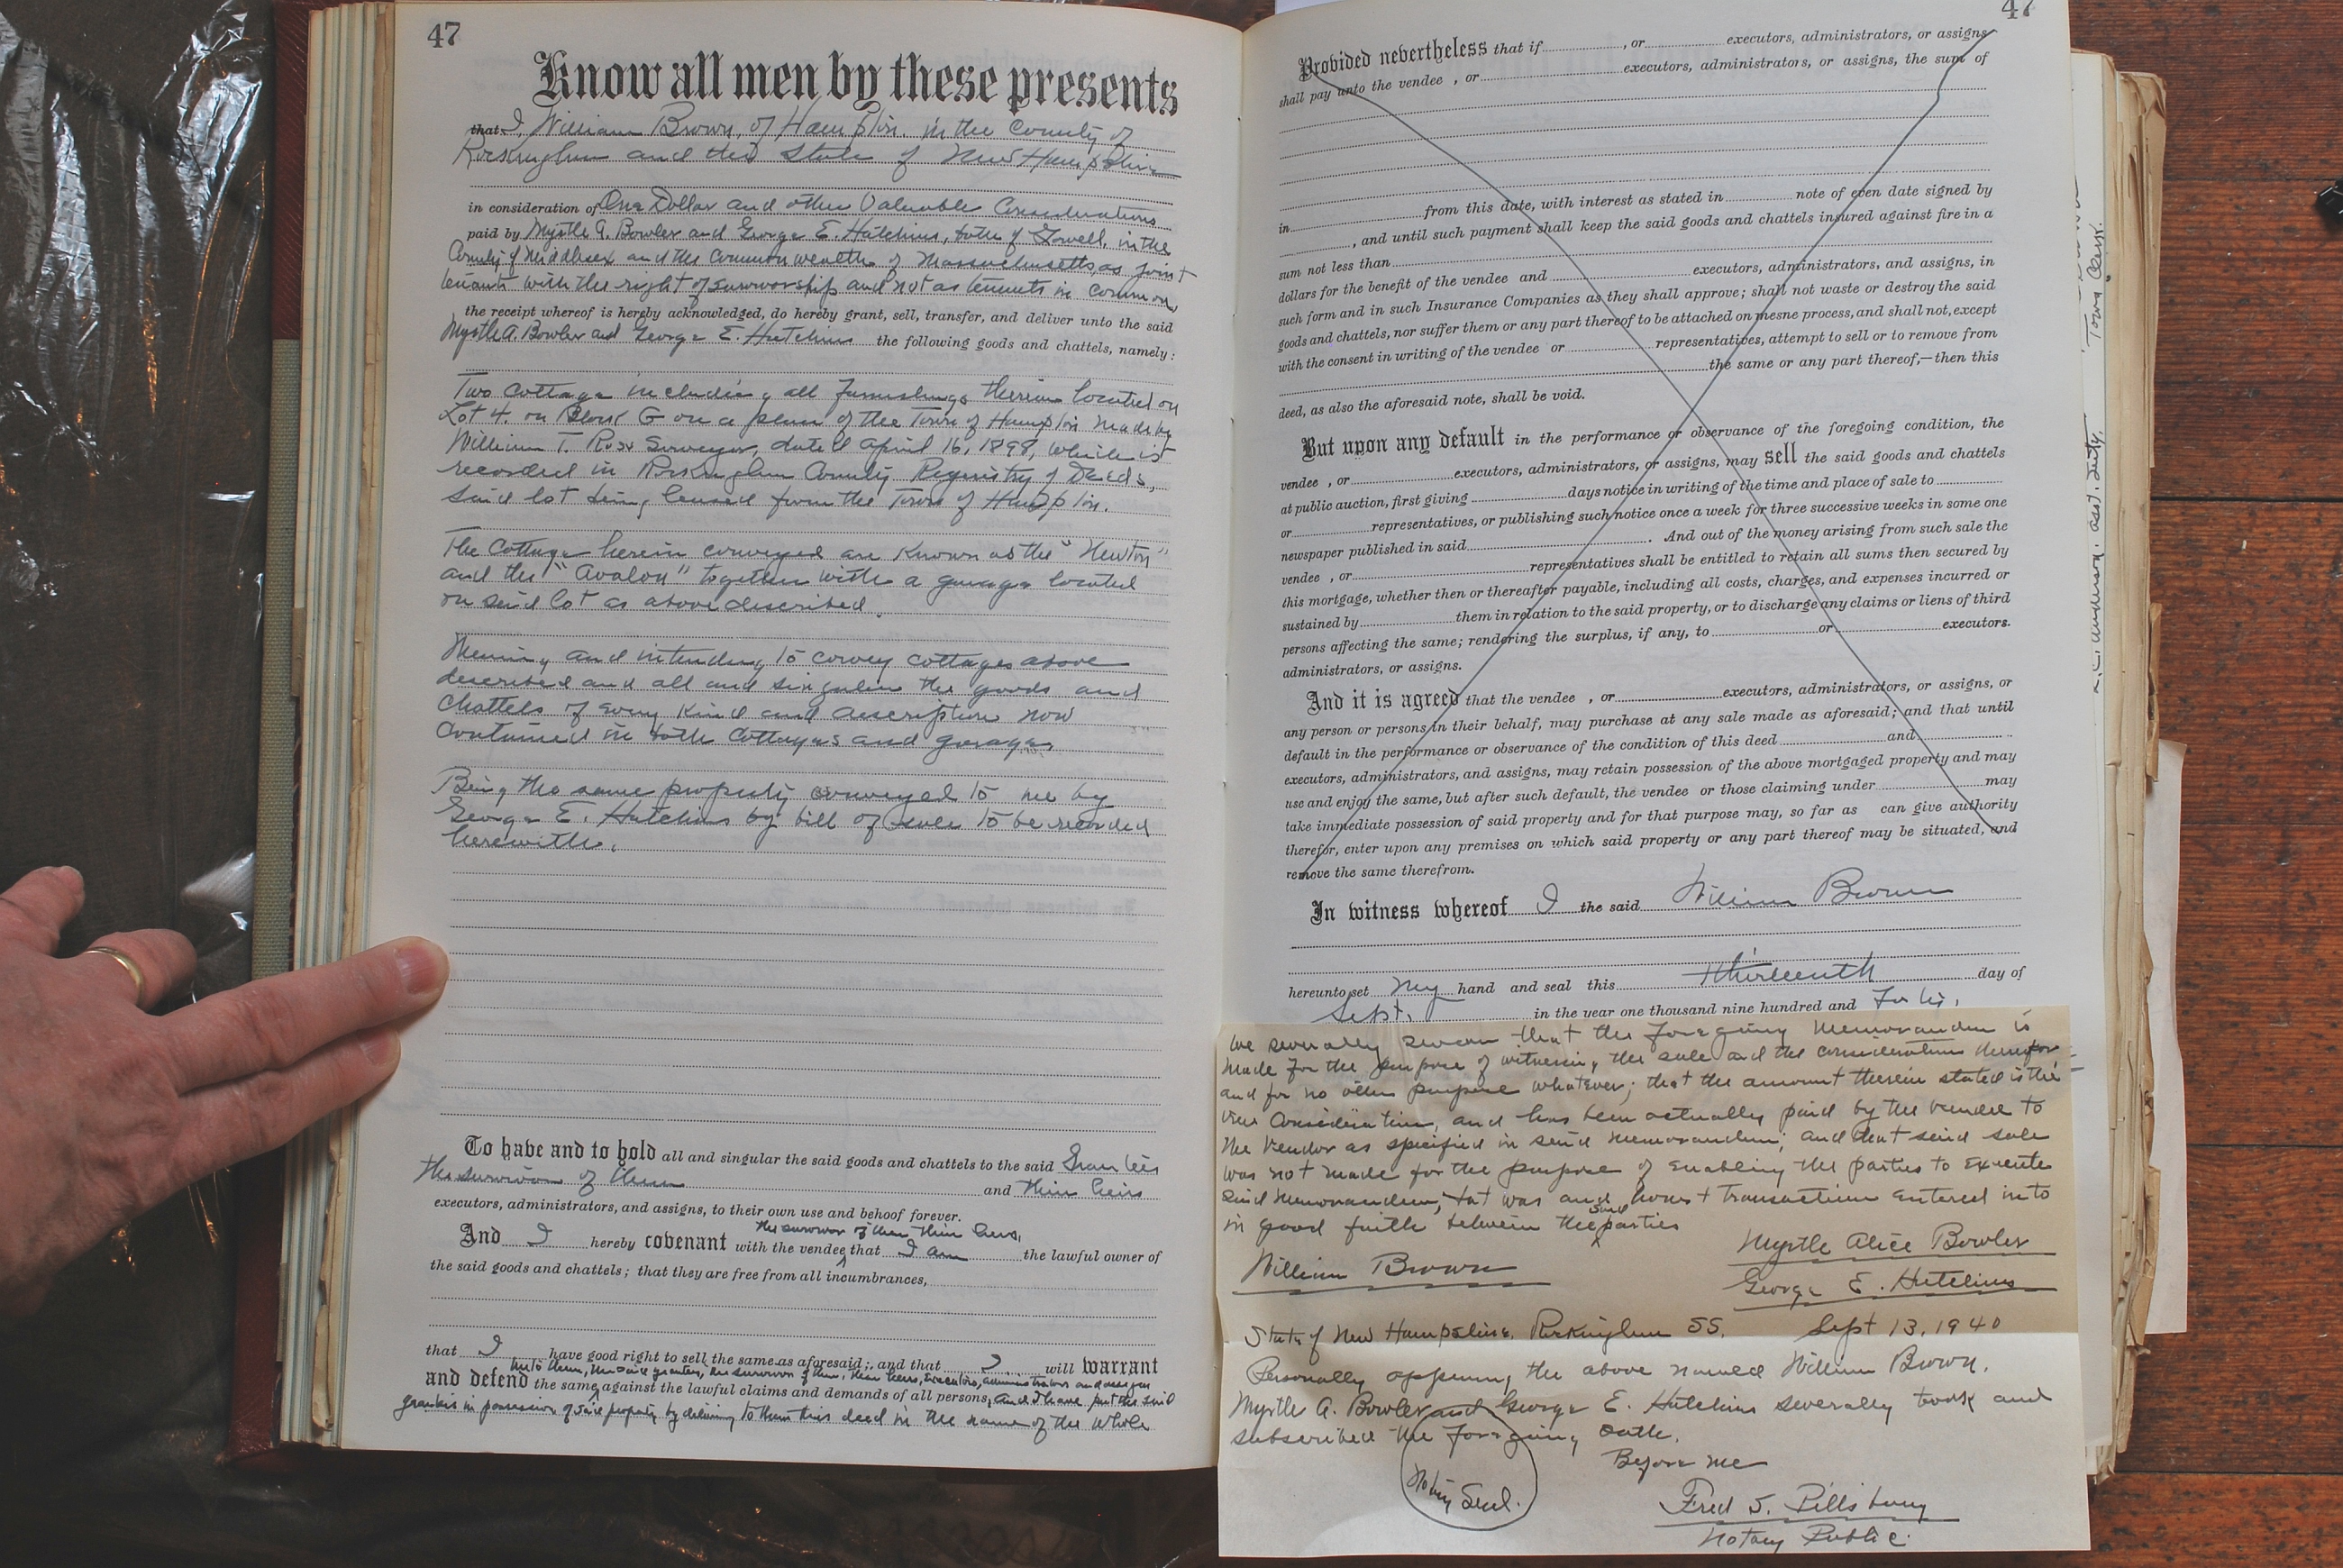 47
Know all men by these presents
that I, William Brown, of Hampton in the County of
Rockingham and the State of New Hampshire
in consideration of One Dollar and other Valuable Considerations
paid by Myrtle A. Bowler and George E. Hutchins, both of Lowell, in the
County of Middlesex and the Commonwealth of Massachusetts, as joint
tenants with the right of survivorship and not as tenants in common,
the receipt whereof is hereby acknowledged, do hereby grant, sell, transfer, and deliver unto the said
Myrtle A. Bowler and George E. Hutchins the following goods and chattels, namely:
Two Cottage including all furnishings therein located on
Lot 4. on Block G on a plan of the Town of Hampton made by
William T. Ross Surveyor, dated April 16, 1898, which is
recorded in Rockingham County Registry of Deeds,
Said lot being leased from the Town of Hampton.
The Cottage herein conveyed are known as the "Newton"
and the "Avalon" together with a garage located
on said lot as above described.
Meaning and intending to convey cottages above
described and all and singular the goods and
chattels of every kind and description now
contained in both cottages and garage
Being the same property conveyed to me by
George E. Hutchins by bill of sale to be recorded
herewith.
To have and to hold all and singular the said goods and chattels to the said Grantees
the survivor of them and their heirs
executors, administrators, and assigns, to their own use and behoof forever.
the survivor of them their heirs,
And I hereby covenant with the vendee that I am the lawful owner of
the said goods and chattels; that they are free from all incumbrances,
that I have good right to sell the same as aforesaid; and that I will warrant
unto them, the said grantees, the survivor of them, their heirs, executors, administrators and assigns
and defend the same against the lawful claims and demands of all persons, and I have put the said
grantees in possession of said property by delivering to them this deed in the name of the whole
47
Provided nevertheless that if , or executors, administrators, or assigns
shall pay unto the vendee , or executors, administrators, or assigns, the sum of
from this date, with interest as stated in note of even date signed by
in , and until such payment shall keep the said goods and chattels insured against fire in a
sum not less than
dollars for the benefit of the vendee and executors, administrators, and assigns, in
such form and in such Insurance Companies as they shall approve; shall not waste or destroy the said
goods and chattels, nor suffer them or any part thereof to be attached on mesne process, and shall not, except
with the consent in writing of the vendee or representatives, attempt to sell or to remove from
the same or any part thereof,—then this
deed, as also the aforesaid note, shall be void.
But upon any default in the performance or observance of the foregoing condition, the
vendee , or executors, administrators, or assigns, may sell the said goods and chattels
at public auction, first giving days notice in writing of the time and place of sale to
or representatives, or publishing such notice once a week for three successive weeks in some one
newspaper published in said . And out of the money arising from such sale the
vendee , or representatives shall be entitled to retain all sums then secured by
this mortgage, whether then or thereafter payable, including all costs, charges, and expenses incurred or
sustained by them in relation to the said property, or to discharge any claims or liens of third
persons affecting the same; rendering the surplus, if any, to or executors.
administrators, or assigns.
And it is agreed that the vendee , or executors, administrators, or assigns, or
any person or persons in their behalf, may purchase at any sale made as aforesaid; and that until
default in the performance or observance of the condition of this deed and
executors, administrators, and assigns, may retain possession of the above mortgaged property and may
use and enjoy the same, but after such default, the vendee or those claiming under may
take immediate possession of said property and for that purpose may, so far as can give authority
therefor, enter upon any premises on which said property or any part thereof may be situated, and
remove the same therefrom.
In witness whereof I the said William Brown
hereunto set my hand and seal this thirteenth day of
Sept. in the year one thousand nine hundred and Forty.
We severally swear that the foregoing Memorandum is
made for the purpose of witnessing the sale and the consideration therefor
and for no other purpose whatever; that the amount therein stated is the
true Consideration, and has been actually paid by the vendee to
the Vendor as specified in said Memorandum; and that said sale
was not made for the purpose of enabling the parties to execute
said Memorandum, but was and honest transaction entered into
in good faith between the said parties
William Brown
Myrtle Alice Bowler
George E. Hutchins
State of New Hampshire, Rockingham SS. Sept 13, 1940
Personally appearing the above named William Brown,
Myrtle A. Bowler and George E. Hutchins severally took and
subscribed the foregoing oath.
Before me
Notary Seal.
Fred S. Pillsbury
Notary Public.
Town Clerk.